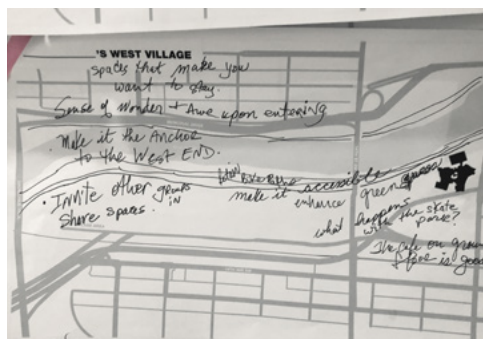 'S WEST VILLAGE
spaces that make you
want to stay.
Sense of Wonder + Awe upon entering
· Make it the Anchor
to the West END.
· Invite other groups
IN
Share spaces.
make it accessible
enhance green
what happens
with the skate
park?
The cafe on groun
floor is good